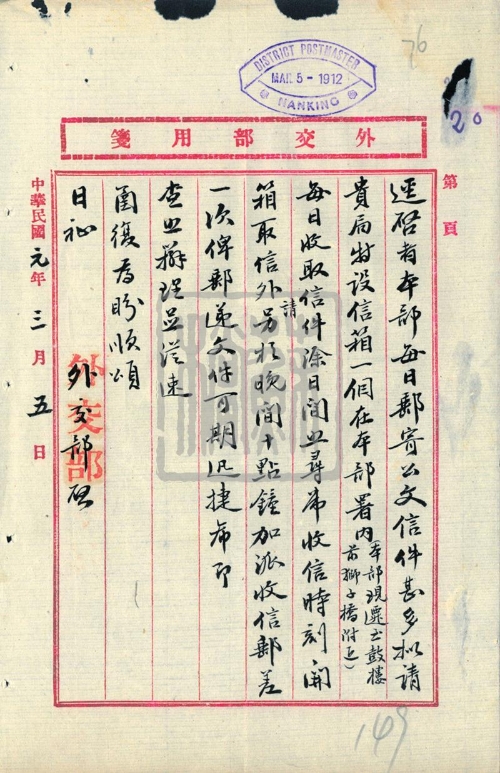 76
DISTRICT POSTMASTER
MAR 5 - 1912
NANKING
20
外交部用箋
第 頁
逕啓者本部每日郵寄公文信件甚多擬請
貴局特設信箱一個在本部署內(本部現遷至鼓樓前獅子橋附近)
每日收取信件除日間照尋常收信時刻開
箱取信外另請於晚間十點鐘加派收信郵差
一次俾郵遞文件可期迅捷希即
查照辦理並從速
圖復為盼順頌
日祉
外交部啟
外交部
中華民國元年三月五日
149